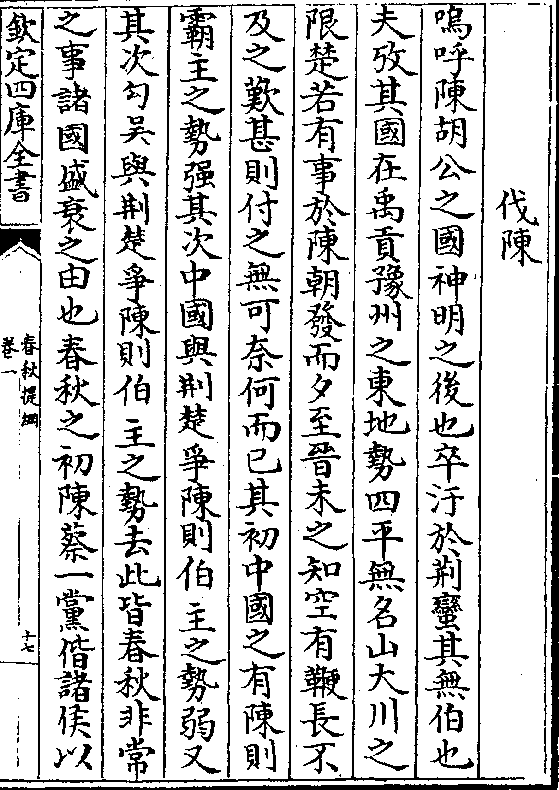 伐陳
嗚呼陳胡公之國神明之後也卒汙於荆蠻其無伯也
夫攷其國在禹貢豫州之東地勢四平無名山大川之
限楚若有事於陳朝發而夕至晉未之知空有鞭長不
及之歎甚則付之無可奈何而已其初中國之有陳則
霸主之勢强其次中國與荆楚爭陳則伯主之勢弱又
其次勾吴與荆楚爭陳則伯主之勢去此皆春秋非常
之事諸國盛衰之由也春秋之初陳蔡一黨偕諸侯以
欽定四庫全書
春秋提綱
卷一
十七